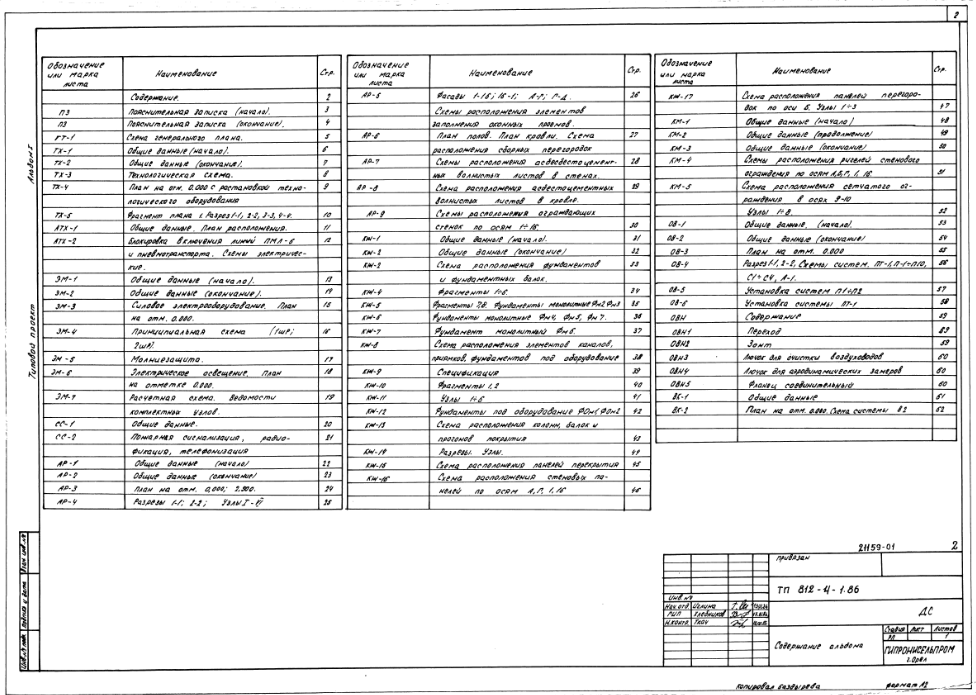 2
Альбом I
Типовой проект
Обозначение или марка листа Наименование Стр.
Содержание. 2
ПЗ Пояснительная записка (начало). 3
ПЗ Пояснительная записка (окончание). 4
ГТ-1 Схема генерального плана. 5
ТХ-1 Общие данные (начало). 6
ТХ-2 Общие данные (окончание). 7
ТХ-3 Технологическая схема. 8
ТХ-4 План на отм. 0.000 с растановкой техно- 9
логического оборудования
ТХ-5 Фрагмент плана 1. Разрез 1-1, 2-2, 3-3, 4-4. 10
АТХ-1 Общие данные. План расположения. 11
АТХ-2 Блокировка включения линий ПМЛ-6 12
и пневмотранспорта. Схемы электричес-
кие.
ЭМ-1 Общие данные (начало). 13
ЭМ-2 Общие данные (окончание). 14
ЭМ-3 Силовое электрооборудование. План 15
на отм. 0.000.
ЭМ-4 Принципиальная схема (1ШР; 16
2ШР).
ЭМ-5 Молниезащита. 17
ЭМ-6 Электрическое освещение. План
на отметке 0.000.
ЭМ-7 Расчетная схема. Ведомости 19
комплектных узлов.
СС-1 Общие данные. 20
СС-2 Пожарная сигнализация, радио- 21
фикация, телефонизация
АР-1 Общие данные (начало) 22
АР-2 Общие данные (окончание) 23
АР-3 План на отм. 0,000; 2.900. 24
АР-4 Разрезы 1-1; 2-2; Узлы I-VI 25
Обозначение или марка листа Наименование Стр.
АР-5 Фасады 1-16; 16-1; А-Г; Г-А. 26
Схемы расположения элементов
заполнения оконных проемов.
АР-6 План полов. План кровли. Схема 27
расположения сборных перегородок
АР-7 Схемы расположения асбестоцемент- 28
ных волнистых листов в стенах.
АР-8 Схема расположения асбестоцементных 29
волнистых листов в кровле.
АР-9 Схемы расположения ограждающих
стенок по осям 1÷16. 30
КЖ-1 Общие данные (начало). 31
КЖ-2 Общие данные (окончание) 32
Схема расположения фундаментов 33
и фундаментных балок.
КЖ-4 Фрагменты 1÷6. 34
КЖ-5 Фрагменты 7,8. Фундаменты монолитные Фм2, Фм3 35
КЖ-6 Фундаменты монолитные Фм4, Фм5, Фм7. 36
КЖ-7 Фундамент монолитный Фм6. 37
КЖ-8 Схема расположения элементов каналов,
приямков, фундаментов под оборудование 38
КЖ-9 Спецификация 39
КЖ-10 Фрагменты 1,2 40
КЖ-11 Узлы 1÷6 41
КЖ-12 Фундаменты под оборудование ФОм1, ФОм2 42
КЖ-13 Схема расположения колонн, балок и
прогонов покрытия 43
КЖ-14 Разрезы. Узлы. 44
КЖ-15 Схема расположения панелей перекрытия 45
КЖ-16 Схема расположения стеновых па-
нелей по осям А, Г, 1, 16 46
Обозначение или марка листа Наименование Стр.
КЖ-17 Схема расположения панелей перегоро-
док по оси 6. Узлы 1÷3 47
КМ-1 Общие данные (начало) 48
КМ-2 Общие данные (продолжение) 49
КМ-3 Общие данные (окончание) 50
КМ-4 Схемы расположения ригелей стенового
ограждения по осям А, Б, Г, 1, 16 51
КМ-5 Схема расположения сетчатого ог-
раждения в осях 9-10
Узлы 1÷8. 52
ОВ-1 Общие данные, (начало). 53
ОВ-2 Общие данные (окончание)
ОВ-3 План на отм. 0.000 55
ОВ-4 Разрез 1-1, 2-2, Схемы систем, ПГ-1, П-1÷П10, 56
С1÷С4, А-1.
ОВ-5 Установка систем П1÷П2 57
ОВ-6 Установка системы ПТ-1 58
ОВН Содержание
ОВН1 Переход
ОВН2 Зонт 59
ОВН3 Лючок для очистки воздуховодов 60
ОВН4 Лючок для аэродинамических замеров 60
ОВН5 Фланец соединительный 60
ВК-1 Общие данные 61
ВК-2 План на отм. 0.000. Схема системы В2 62
21159-01 2
привязан
Инв. №
ТП 812-4-1.86
Нач. отд.
ГИП
Н.контр. Ткач
ДС
Содержание альбома
Стадия Лист Листов
РП 1
ГИПРОНИСЕЛЬПРОМ
г. Орел
Копировал Баздырева формат А2
Инв. № подл. Подпись и дата Взам. инв. №